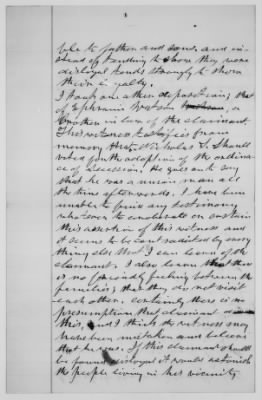 ble to father and sons, and in-
stead of tending to show they were
disloyal tends strongly to show
their loyalty.
I took one other deposition; that
of Ephraim Watson, a
brother in law of the claimant.
This witness testifies from
memory that Nicholas L. Shaull
voted for the adoption of the ordinance
of secession. He goes on to say
that he was a union man all
the time afterwards. I have been
unable to find any testimony
whatever to corroborate or sustain
this assertion of this witness and
it seems to be contradicted by every
thing else that I can learn of the
claimant. I also learn that there
is no friendly feeling between the
families; that they do not visit
each other. Certainly there is no
presumption that claimant did
this, and I think the witness may
have been mistaken and believe
that he was. If this claimant should
be found disloyal it would astonish
the people living in her vicinity